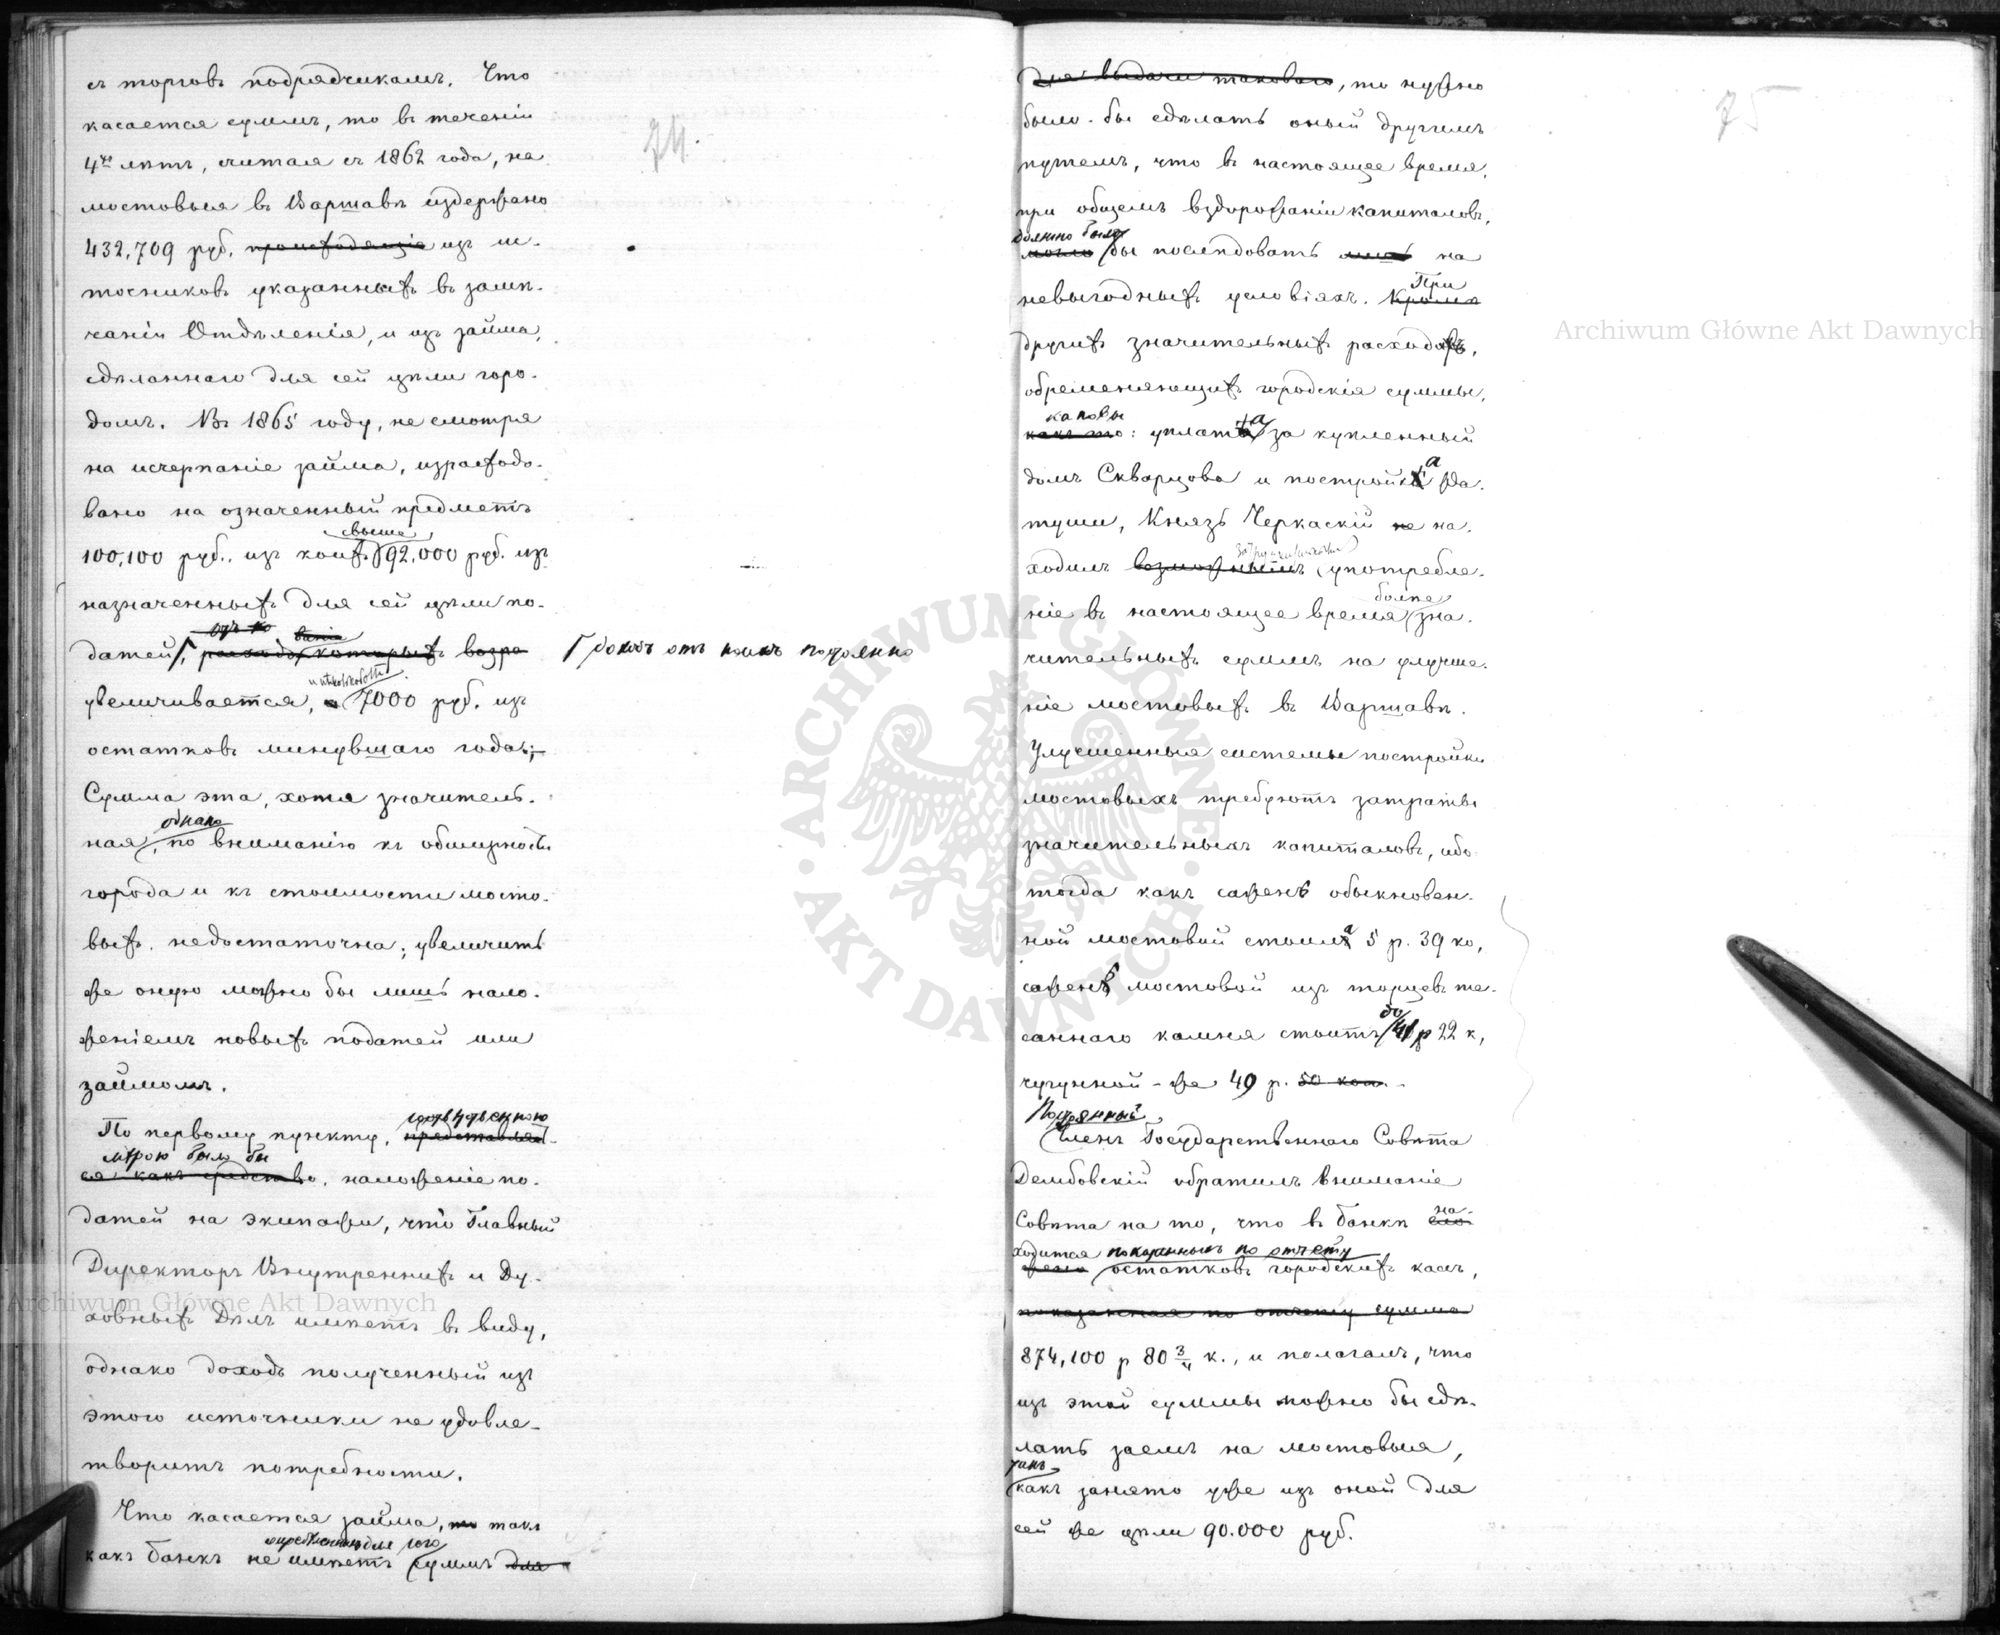 74.
съ торговъ подрядчикамъ. Что
касается суммъ, то въ теченіи
4хъ лѣтъ, считая съ 1862 года, на
мостовыя въ Варшавѣ издержано
432,709 руб. происходящіе изъ ис-
точниковъ указанныхъ въ замѣ-
чаніи Отдѣленія, и изъ займа,
сдѣланнаго для сей цѣли горо-
домъ. Въ 1865 году, не смотря
на исчерпаніе займа, израсходо-
вано на означенный предметъ
свыше
100,100 руб., изъ коихъ 92,000 руб. изъ
назначенныхъ для сей цѣли по-
датей, расходы которыхъ возра
доходъ отъ коихъ постоянно
увеличивается, а 7000 руб. изъ
остатковъ минувшаго года;
Сумма эта, хотя значитель-
однако
ная, по вниманію къ обширности
города и къ стоимости мосто-
выхъ, недостаточна; увеличить
же оную можно бы лишь нало-
женіемъ новыхъ податей или
займомъ.
соотвѣтственною
По первому пункту, представляет-
мѣрою было бы
ся какъ средство, наложеніе по-
датей на экипажи, что Главный
Директоръ Внутреннихъ и Ду-
ховныхъ Дѣлъ имѣетъ въ виду,
однако доходъ полученный изъ
этого источника не удовле-
творитъ потребности.
Что касается займа, то такъ
какъ банкъ не имѣетъ суммъ для
75
для выдачи таковаго, то нужно
было-бы сдѣлать оный другимъ
путемъ, что въ настоящее время,
при общемъ вздорожаніи капиталовъ,
должно было
могло бы послѣдовать лишь на
невыгодныхъ условіяхъ. Кромѣ
При
другихъ значительныхъ расходахъ,
обременяющихъ городскія суммы,
каковы
какъ то: уплата за купленный
домъ Скварцова и постройка Ра-
туши, Князь Черкаскій не на-
ходилъ возможнымъ употребле-
болѣе
ніе въ настоящее время зна-
чительныхъ суммъ на улучше-
ніе мостовыхъ въ Варшавѣ.
Улучшенныя системы постройки
мостовыхъ требуютъ затраты
значительныхъ капиталовъ, ибо
тогда какъ сажень обыкновен-
ной мостовой стоитъ 5 р. 39 ко,
сажень мостовой изъ торцевъ те-
до
саннаго камня стоитъ 41 р 22 к,
чугунной - же 49 р. 50 коп.
Членъ Государственнаго Совѣта
Дембовскій обратилъ вниманіе
Совѣта на то, что въ банкѣ на-
ходится показанныхъ по отчету
остатковъ городскихъ кассъ,
показанная по отчету сумма
874,100 р 80 3/4 к., и полагалъ, что
изъ этой суммы можно бы сдѣ-
лать заемъ на мостовыя,
такъ
какъ занято уже изъ оной для
сей же цѣли 90.000 руб.
Archiwum Główne Akt Dawnych
Archiwum Główne Akt Dawnych
ARCHIWUM GŁÓWNE AKT DAWNYCH